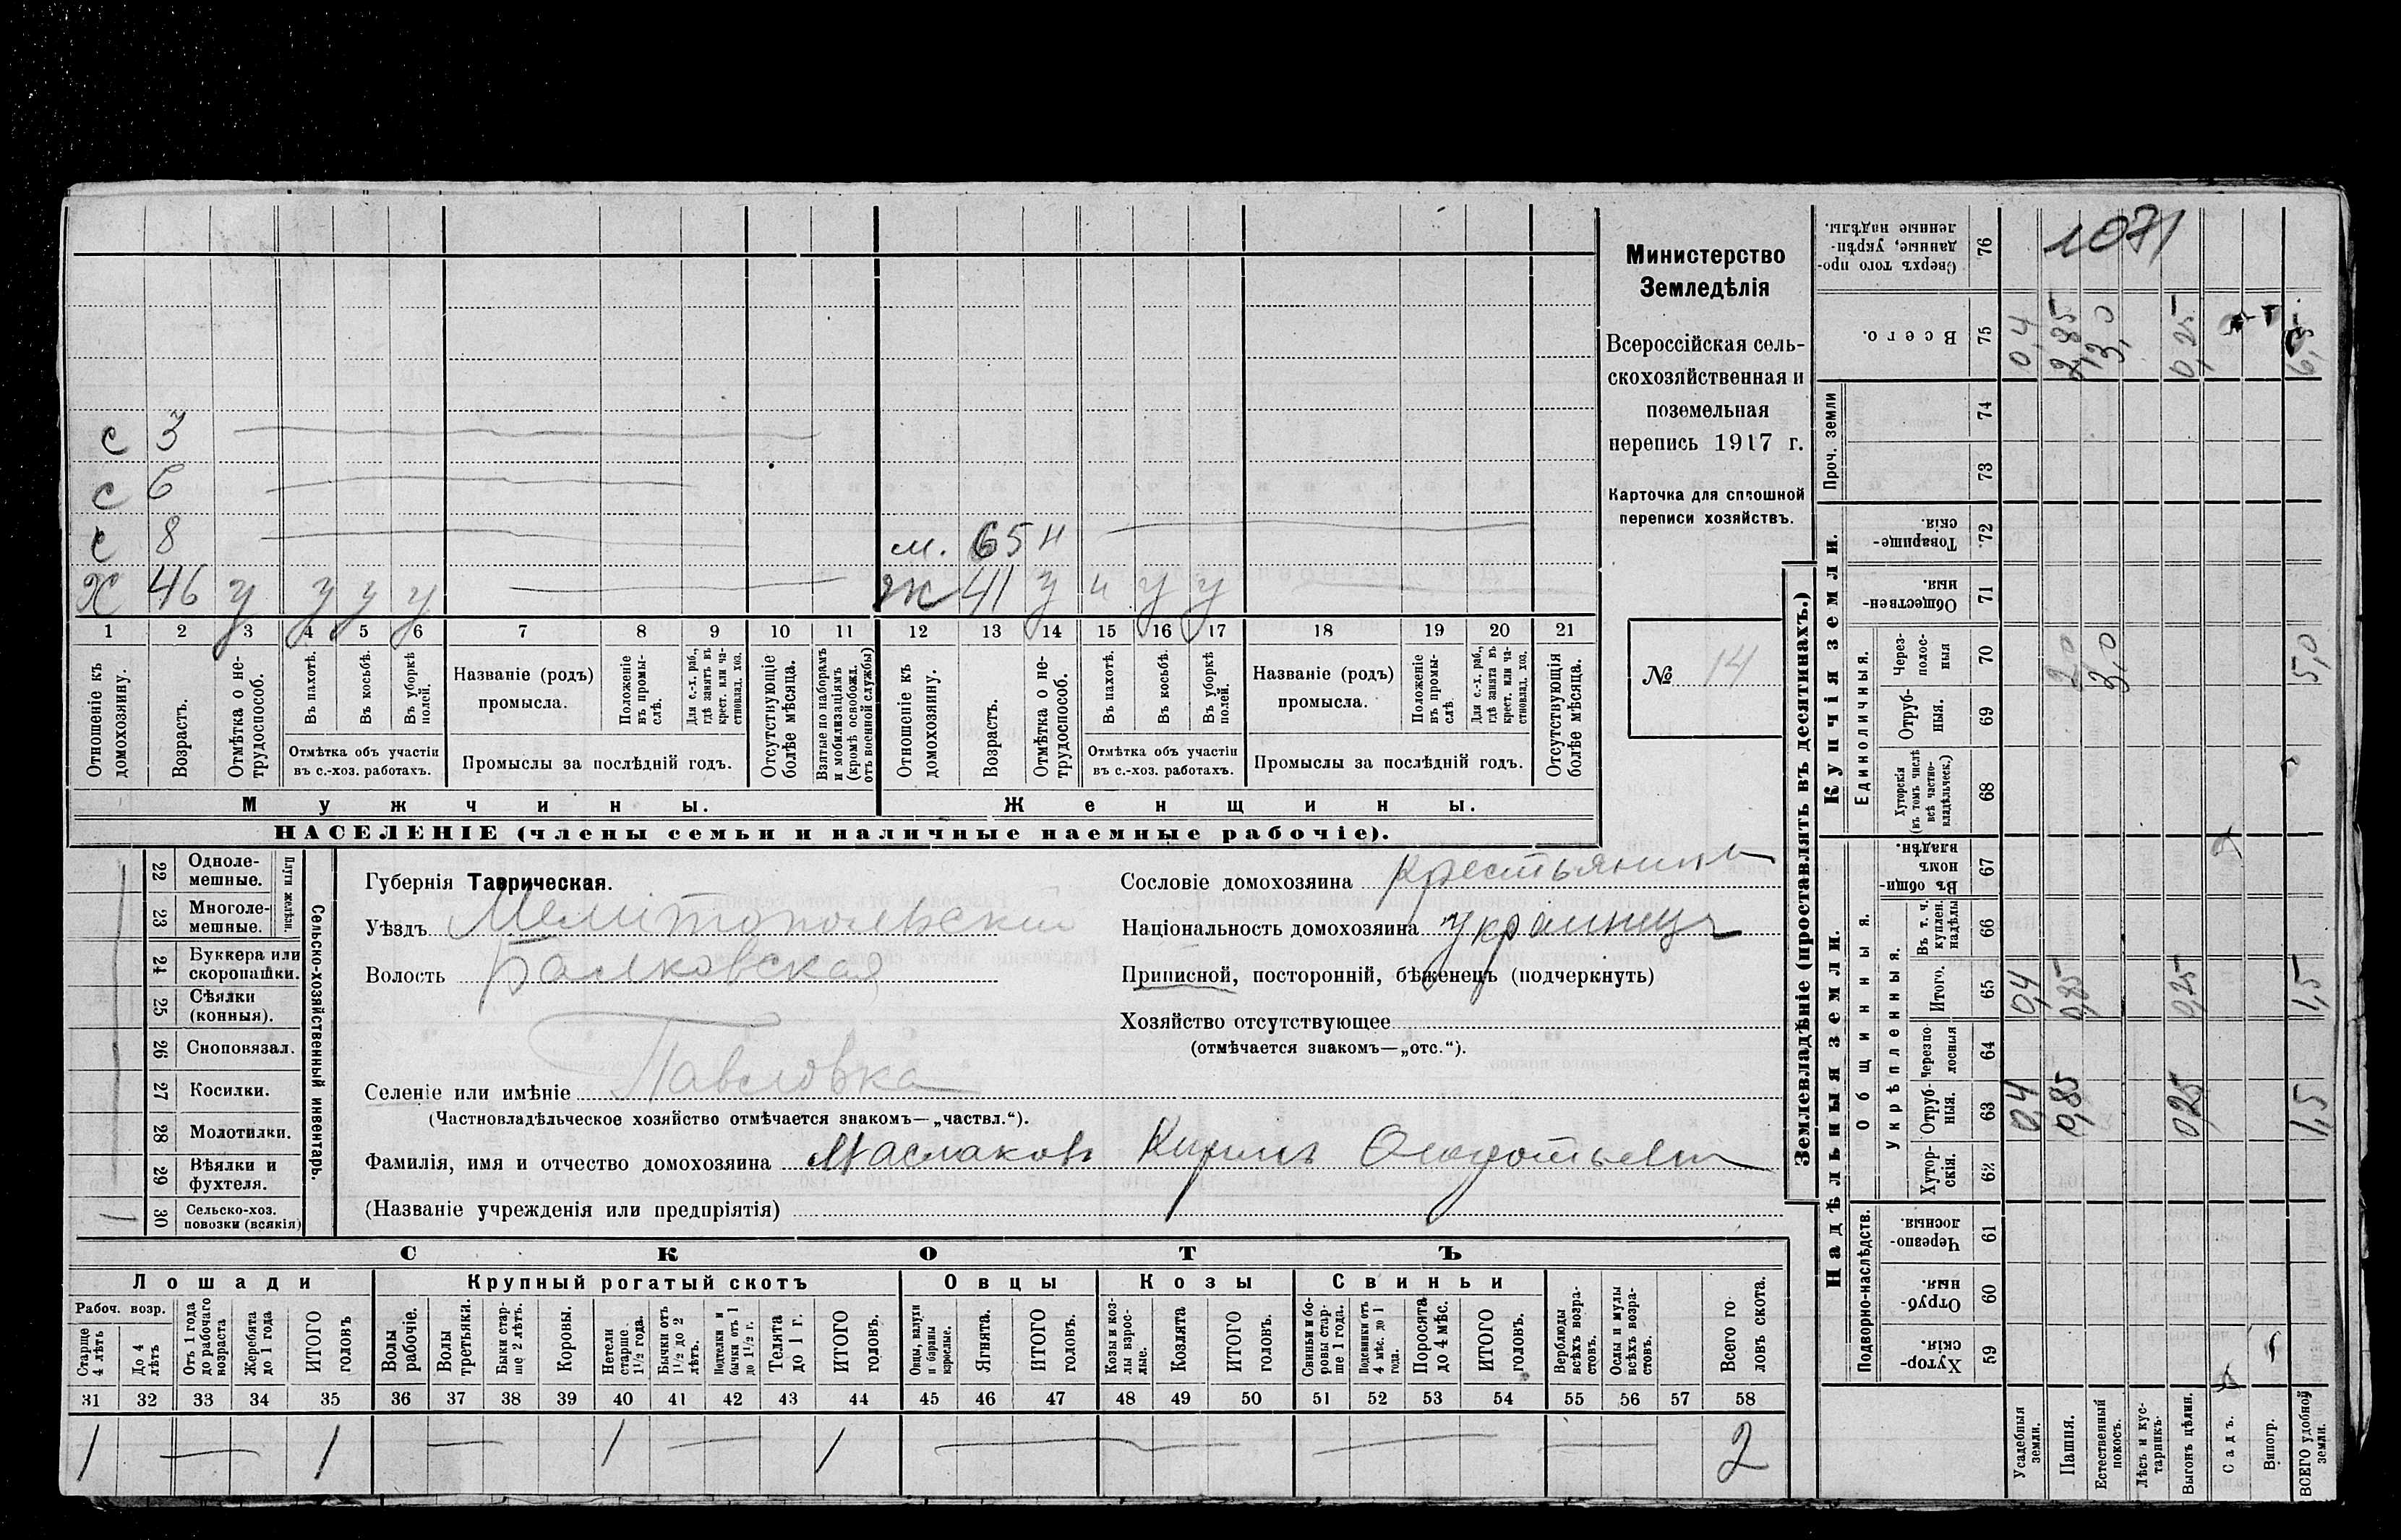 1071
Министерство
Земледѣлія
Всероссійская сель-
скохозяйственная и
поземельная
перепись 1917 г.
Карточка для сплошной
переписи хозяйствъ.
№ 14
с 3
с 6
с 8
м. 65 н
Х 46 у у у у
ж 41 у и у у
1 2 3 4 5 6 7 8 9 10 11 12 13 14 15 16 17 18 19 20 21
Отношеніе къ домохозяину.
Возрастъ.
Отмѣтка о не-трудоспособ.
Въ пахотѣ.
Въ косьбѣ.
Въ уборкѣ полей.
Отмѣтка объ участіи
въ с.-хоз. работахъ.
Названіе (родъ)
промысла.
Положеніе въ промы-слѣ.
Для с.-х. раб., гдѣ занятъ въ крест. или ча-стновлад. хоз.
Промыслы за послѣдній годъ.
Отсутствующіе болѣе мѣсяца.
Взятые по наборамъ и мобилизаціямъ (кромѣ освобожд. отъ военной службы)
Отношеніе къ домохозяину.
Возрастъ.
Отмѣтка о не-трудоспособ.
Въ пахотѣ.
Въ косьбѣ.
Въ уборкѣ полей.
Отмѣтка объ участіи
въ с.-хоз. работахъ.
Названіе (родъ)
промысла.
Положеніе въ промы-слѣ.
Для с.-х. раб., гдѣ занята въ крест. или ча-стновлад. хоз.
Промыслы за послѣдній годъ.
Отсутствующія болѣе мѣсяца.
Мужчины.
Женщины.
НАСЕЛЕНІЕ (члены семьи и наличные наемные рабочіе).
Сельско-хозяйственный инвентарь.
Плуги желѣзн.
22 Одноле-мешные.
23 Многоле-мешные.
24 Буккера или скоропашки.
25 Сѣялки (конныя).
26 Сноповязал.
27 Косилки.
28 Молотилки.
29 Вѣялки и фухтеля.
30 Сельско-хоз. повозки (всякія)
1
Губернія Таврическая.
Уѣздъ Мелитопольскій
Волость Балковская
Селеніе или имѣніе Павловка
(Частновладѣльческое хозяйство отмѣчается знакомъ—„частвл.“).
Фамилія, имя и отчество домохозяина Маслаковъ Кирилъ
(Названіе учрежденія или предпріятія)
Сословіе домохозяина Крестьянинъ
Національность домохозяина украинецъ
Приписной, посторонній, бѣженецъ (подчеркнуть)
Хозяйство отсутствующее
(отмѣчается знакомъ—„отс.“).
СКОТЪ
Лошади
Крупный рогатый скотъ
Овцы
Козы
Свиньи
Рабоч. возр.
Старше 4 лѣтъ
До 4 лѣтъ
Отъ 1 года до рабочаго возраста
Жеребята до 1 года
ИТОГО головъ
Волы рабочіе.
Волы третьяки.
Быки стар-ше 2 лѣтъ.
Коровы.
Нетели старше 1½ года.
Бычки отъ 1½ до 2 лѣтъ.
Подтелки и бычки отъ 1 до 1½ г.
Телята до 1 г.
ИТОГО головъ.
Овцы, валухи и бараны взрослые.
Ягнята.
ИТОГО головъ.
Козы и коз-лы взрос-лые.
Козлята
ИТОГО головъ.
Свиньи и бо-ровы стар-ше 1 года.
Подсвинки отъ 4 мѣс. до 1 года.
Поросята до 4 мѣс.
ИТОГО головъ.
Верблюды всѣхъ возра-стовъ.
Ослы и мулы всѣхъ возра-стовъ.
Всего го-ловъ скота.
31 32 33 34 35 36 37 38 39 40 41 42 43 44 45 46 47 48 49 50 51 52 53 54 55 56 57 58
1 1 1 1 2
Землевладѣніе (проставлять въ десятинахъ.)
Надѣльныя земли.
Купчія земли.
Проч. земли
Подворно-наслѣдств.
Общинныя.
Укрѣпленныя.
Единоличныя.
Хутор-скія. 59
Отруб-ныя. 60
Черезпо-лосныя. 61
Хутор-скія. 62
Отруб-ныя. 63
Черезпо-лосныя 64
Итого. 65
Въ т. ч. куплен. надѣлы 66
Въ общин-номъ владѣн. 67
Хуторскія (въ томъ числѣ всѣ частно-владѣльческ.) 68
Отруб-ныя. 69
Через-полос-ныя 70
Обществен-ныя. 71
Товарище-скія. 72
73
74
Всего. 75
Сверхъ того про-данные, укрѣп-ленные надѣлы. 76
Усадебныя земли.
Пашня.
Естественный покосъ.
Лѣсъ и кус-тарникъ.
Выгонъ цѣлин.
Садъ.
Виногр.
ВСЕГО удобной земли.
0,4 0,85 0,25 1,5
0,4 0,85 0,25 1,5
2,0 3,0 5,0
0,4 2,85 3,0 0,25 6,5